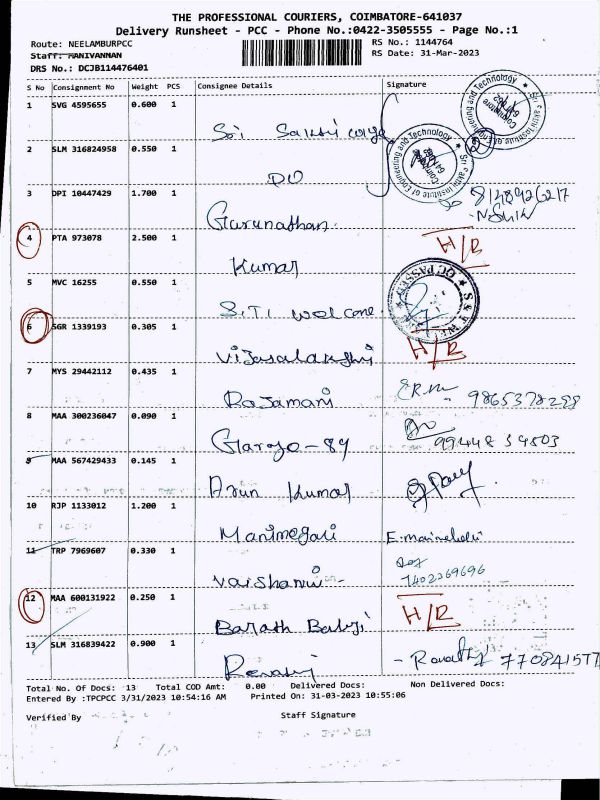 THE PROFESSIONAL COURIERS, COIMBATORE-641037
Delivery Runsheet - PCC - Phone No.:0422-3505555 - Page No.:1
Route: NEELAMBURPCC RS No.: 1144764
Staff: MANIVANNAN RS Date: 31-Mar-2023
DRS No.: DCJB114476401
S No Consignment No Weight PCS Consignee Details Signature
1 SVG 4595655 0.600 1
Sri Sakthi
2 SLM 316824958 0.550 1
DO
3 DPI 10447429 1.700 1
Gurunathan
4 PTA 973078 2.500 1 H/R
Kumar
5 MVC 16255 0.550 1
S.T.I welcome
6 SGR 1339193 0.305 1 H/R
Vijayalakshmi
7 MYS 29442112 0.435 1
Rajamani 9865378288
8 MAA 300236047 0.090 1
Gargo-89 99448 34503
9 MAA 567429433 0.145 1
Arun Kumar
10 RJP 1133012 1.200 1
Manimegali
11 TRP 7969607 0.330 1
Vaishanvi 7402369696
12 MAA 600131922 0.250 1 H/R
Barath Babji
13 SLM 316839422 0.900 1
Revathy
Total No. Of Docs: 13 Total COD Amt: 0.00 Delivered Docs: Non Delivered Docs:
Entered By :TPCPCC 3/31/2023 10:54:16 AM Printed On: 31-03-2023 10:55:06
Verified By Staff Signature